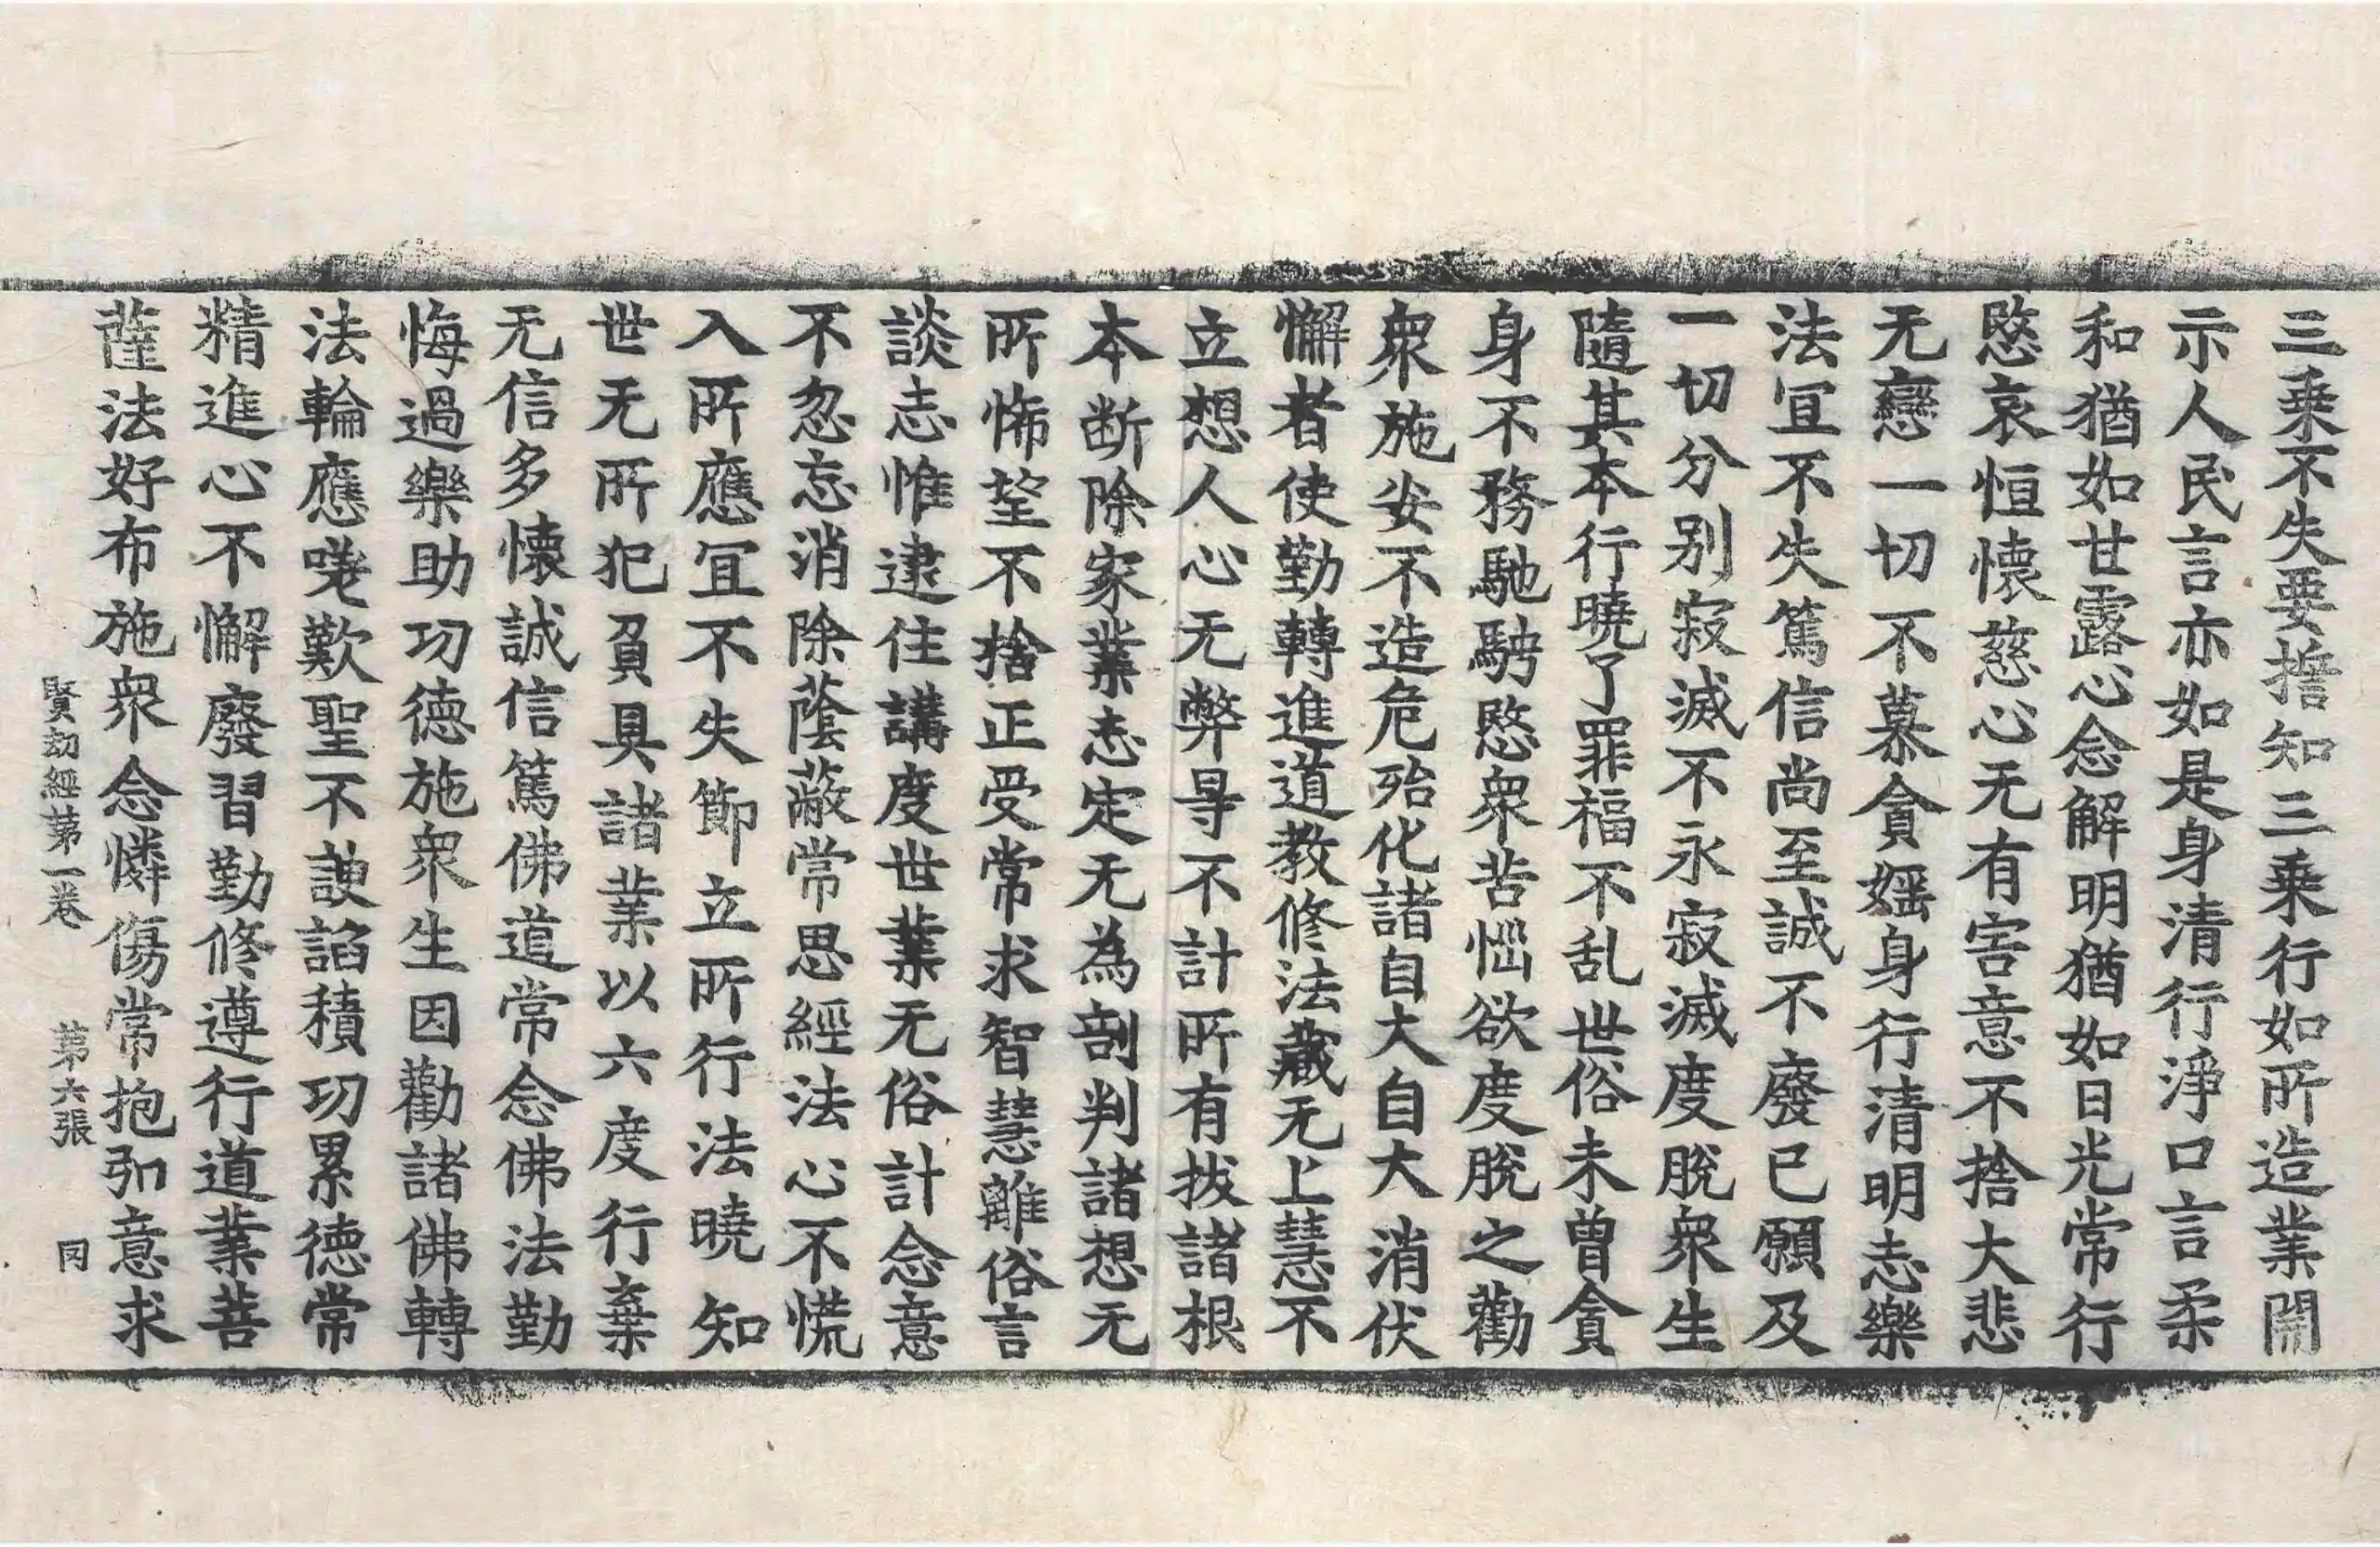 三乗不失要捨知三乗行如所造業開
示人民言亦如是身清行淨口言柔
和猶如甘露心念解明猶如日光常行
愍哀恒懷慈心无有害意不捨大悲
无戀一切不慕貪婬身行清明志樂
法冝不失篤信尚至誠不廢已願及
一切分别寂滅不永寂滅度脫衆生
隨其本行曉了罪福不乱世俗未曽貪
身不務馳騁愍衆苦惱欲度脫之勸
衆施安不造危殆化諸自大自大消伏
懈者使勤轉進道教修法藏无上慧不
立想人心无弊㝵不計所有拔諸根
本断除家業志定无為剖判諸想无
所悕望不捨正受常求智慧離俗言
談志惟逮住講度世業无俗計念意
不忽忘消除蔭蔽常思經法心不慌
入所應冝不失節立所行法曉知
世无所犯負具諸業以六度行棄
无信多懷誠信篤佛道常念佛法勤
悔過樂助功德施衆生因勸諸佛轉
法輪應嗟歎聖不諛諂積功累德常
精進心不懈廢習勤修遵行道業菩
薩法好布施衆念憐傷常抱弘意求
賢劫經第一卷 第六張 冈